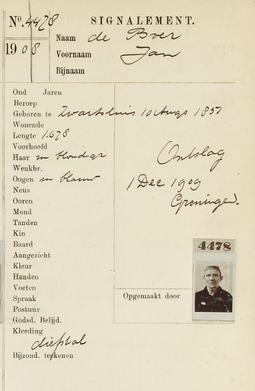 No. 4478 SIGNALEMENT.
1908 Naam de Boer
Voornaam Jan
Bijnaam
Oud Jaren
Beroep
Geboren te Zwartsluis 10 Augs 1851
Wonende
Lengte 1.678
Voorhoofd
Haar m blond gr Ontslag
Wenkbr.
Oogen m blauw 1 Dec 1909
Neus
Ooren Groningen.
Mond
Tanden
Kin
Baard
Aangezicht 4478
Kleur
Handen
Voeten
Spraak Opgemaakt door
Postuur
Godsd. Belijd.
Kleeding
diefstal
Bijzond. teekenen